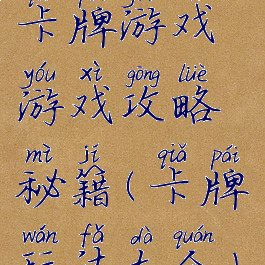 卡牌游戏
yóu xì gōng lüè
游戏攻略
mì jí qiǎ pái
秘籍(卡牌
wán fǎ dà quán